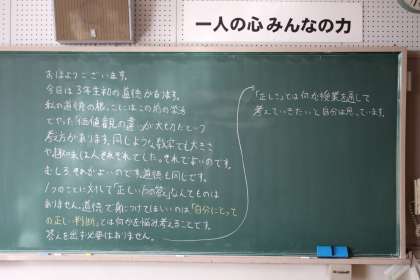 一人の心 みんなの力
おはようございます。
今日は3年生初の道徳があります。
私の道徳の根っこにはこの前の学活
でやった「価値観の違いが大切だ」という
考え方があります。同じような数字でも大きさ
や趣味は人それぞれでした。それでよいのです。
むしろそれがよいのです。道徳も同じです。
1つのことに対して「正しい1の答え」なんてものは
ありません。道徳で身につけてほしいのは「自分にとって
の正しい判断」では何かを悩み考えることです。
答えを出す必要はありません。
「正しさ」とは何か授業を通して
考えていきたいと自分は思っています。